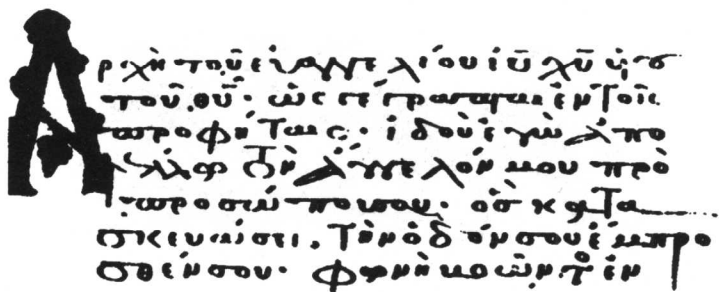 Ἀρχὴ τοῦ εὐαγγελίου ἰῦ χῦ υἱοῦ
τοῦ θῦ· ὡς γέγραπται ἐν τοῖς
προφήταις· ἰδοὺ ἐγὼ ἀπο
στέλλω τὸν ἄγγελόν μου πρὸ
προσώπου σου· ὃς κατα
σκευάσει. τὴν ὁδόν σου ἔμπρο
σθέν σου· φωνὴ βοῶντος ἐν